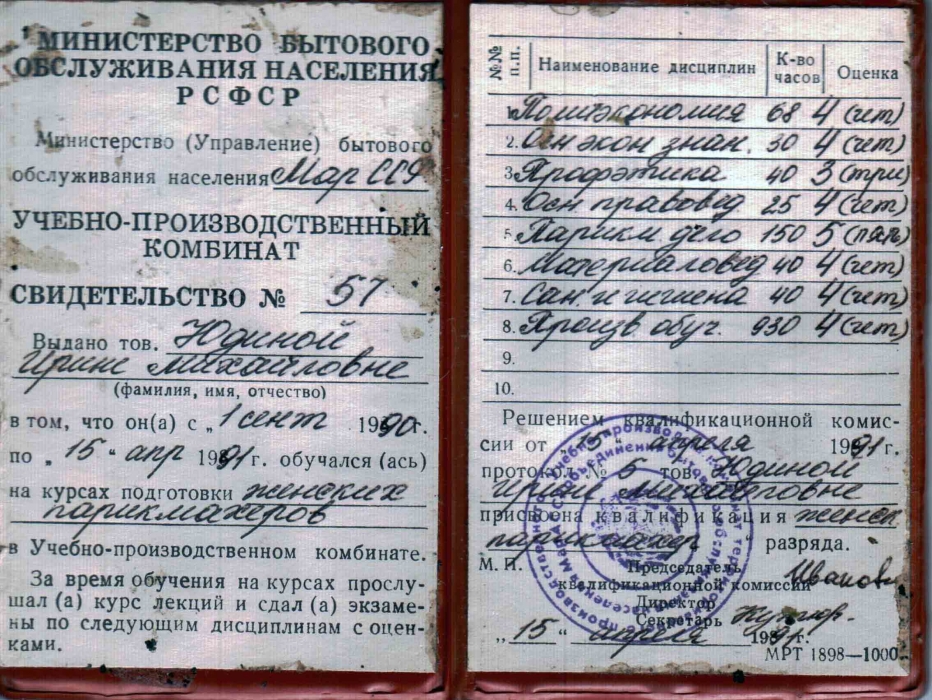 МИНИСТЕРСТВО БЫТОВОГО
ОБСЛУЖИВАНИЯ НАСЕЛЕНИЯ
РСФСР
Министерство (Управление) бытового
обслуживания населения Мар ССР
УЧЕБНО-ПРОИЗВОДСТВЕННЫЙ
КОМБИНАТ
СВИДЕТЕЛЬСТВО № 57
Выдано тов. Юдиной
Ирине Михайловне
(фамилия, имя, отчество)
в том, что он(а) с „1 сент 1990г.
по „15" апр 1991г. обучался (ась)
на курсах подготовки женских
парикмахеров
в Учебно-производственном комбинате.
За время обучения на курсах прослу-
шал (а) курс лекций и сдал (а) экзаме-
ны по следующим дисциплинам с оцен-
ками.
№№ п.п. Наименование дисциплин К-во часов Оценка
1. Политэкономия 68 4 (чет)
2. Осн экон знан. 30 4 (чет)
3. Профэтика 40 3 (три)
4. Осн. правовед 25 4 (чет)
5. Парикм. дело 150 5 (пять)
6. Материаловед 40 4 (чет)
7. Сан. и гигиена 40 4 (чет)
8. Произв обуч. 930 4 (чет)
9.
10.
Решением квалификационной комис-
сии от „15" апреля 1991г.
протокол № 5 тов. Юдиной
Ирине Михайловне
присвоена квалификация женск
парикмахер разряда.
М. П. Председатель
квалификационной комиссии
Директор
Секретарь
„15" апреля 1991г.
МРТ 1898—1000